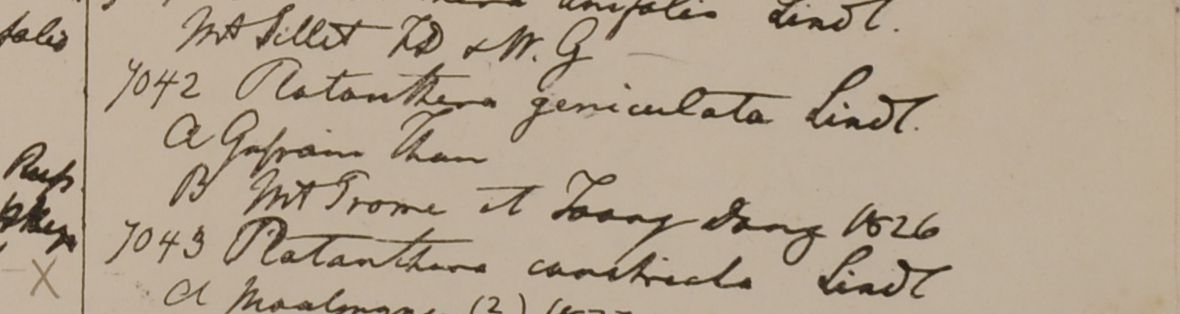 folio
unifolia Lindl.
Mt Sillet FD & W. G
7042 Platanthera geniculata Lindl.
a Gosain Than
B Mt Prome et Taong Dong 1826
7043 Platanthera constricta Lindl
a Moalmyne (2) 1827
X